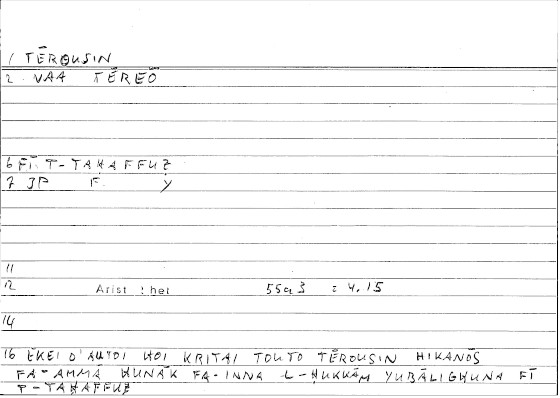 1 TĒROUSIN
2. VAA TĒREŌ
6 FĪ T-TAḤAFFUẒ
7 JP F. Y
11
12 Arist : het 55a3 = 4.15
14
16 EKEI D'AUTOI HOI KRITAI TOUTO TĒROUSIN HIKANŌS
FA-AMMĀ HUNĀK FA-INNA L-ḤUKKĀM YUBĀLIGHUNA FĪ
T-TAḤAFFUẒ